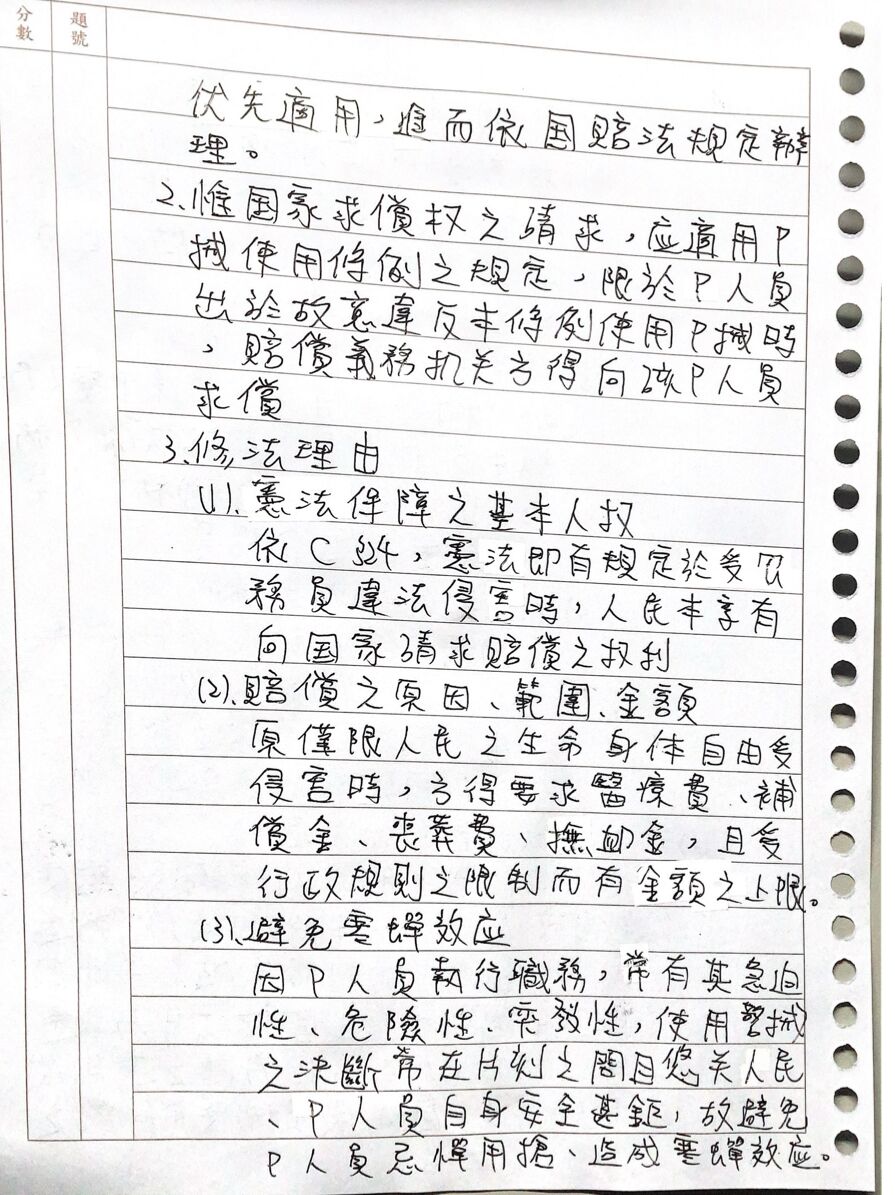 分數
題號
優先適用，進而依国賠法規定辦
理。
2.惟国家求償权之請求，应適用P
械使用條例之規定，限於P人員
出於故意違反本條例使用P械時
，賠償義務机关方得向該P人員
求償
3.修法理由
(1).憲法保障之基本人权
依C §24，憲法即有規定於受公
務員違法侵害時，人民本享有
向国家請求賠償之权利
(2).賠償之原因、範圍、金額
原僅限人民之生命身体自由受
侵害時，方得要求醫療費、補
償金、喪葬費、撫卹金，且受
行政規則之限制而有金額之上限。
(3).避免寒蟬效应
因P人員執行職務，常有其急迫
性、危險性、突發性，使用警械
之決斷常在片刻之間且悠关人民
、P人員自身安全甚鉅，故避免
P人員忌憚用搶、造成寒蟬效应。